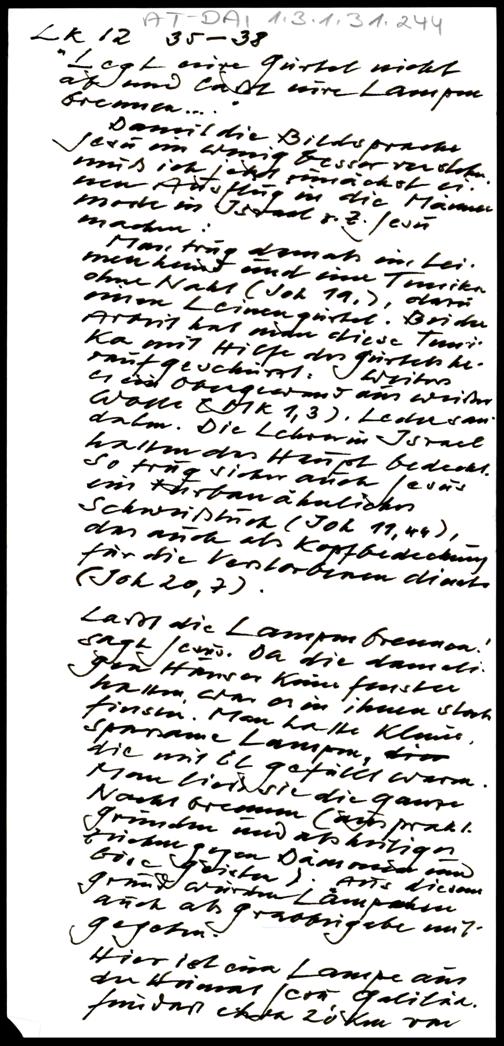 AT-DAI 1.3.1.31.244
LK 12 35-38
"Legt eure Gürtel nicht
ab und laßt eure Lampen
brennen..."
Damit die Bildsprache
Jesu ein wenig besser verstehen
muß ich jetzt zunächst ei-
nen Ausflug in die Männer
mode in Israel z. Z. Jesu
machen:
Man trug damals ein Lei-
nenhemd und eine Tunika
ohne Naht (Joh 19,), dazu
einen Leinengürtel. Bei der
Arbeit hat man diese Tuni-
ka mit Hilfe des Gürtels he-
raufgeschürzt: Weiters
ein Obergewand aus weißer
Wolle (Mk 1,3). Ledersan-
dalen. Die Lehrer in Israel
hatten das Haupt bedeckt.
So trug sicher auch Jesus
ein turbanähnliches
Schweißtuch (Joh 11,44),
das auch als Kopfbedeckung
für die Verstorbenen diente
(Joh 20,7).
Laßt die Lampen brennen!
sagt Jesus. Da die damali-
gen Häuser keine Fenster
hatten, war es in ihnen stock
finster. Man hatte kleine,
sparsame Lampen,
die mit Öl gefüllt waren.
Man ließ sie die ganze
Nacht brennen (aus prakt.
gründen und als heiliges
zeichen gegen Dämonen und
böse Geister). Aus diesem
grund wurden Lämpchen
auch als Grabbeigabe mit-
gegeben.
Hier ist eine Lampe aus
der Heimat Jesu Galiläa.
fundort etwa 20 km von